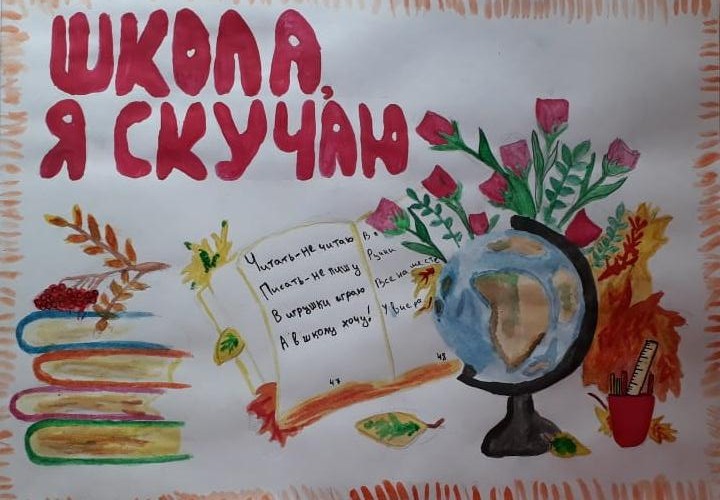 ШКОЛА,
Я СКУЧАЮ
Читать-не читаю
Писать-не пишу
В игрушки играю
А в школу хочу!
47
В
Ручки
Все на месте
48